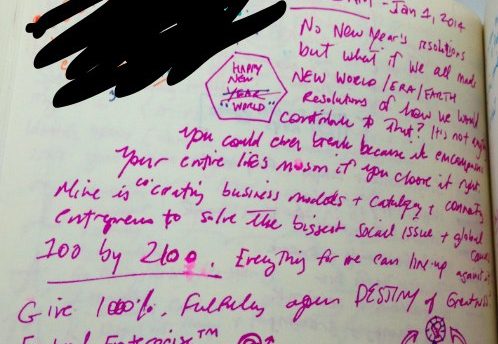 AM - Jan 1, 2014
No New Year's resolutions
but what if we all made
NEW WORLD / ERA / EARTH
Resolutions of how we would
contribute to That? It's not
HAPPY
NEW
YEAR
"WORLD"
you could ever break because it encompasses
Your entire life's mission if you choose it right
Mine is co creating business models + catalyzing + connecting
entrepreneurs to solve the biggest social issue + global
100 by 2100. Everything for me can line-up against it
Give 100%. Fulfilling upon DESTINY of Greatness
Enterprise™